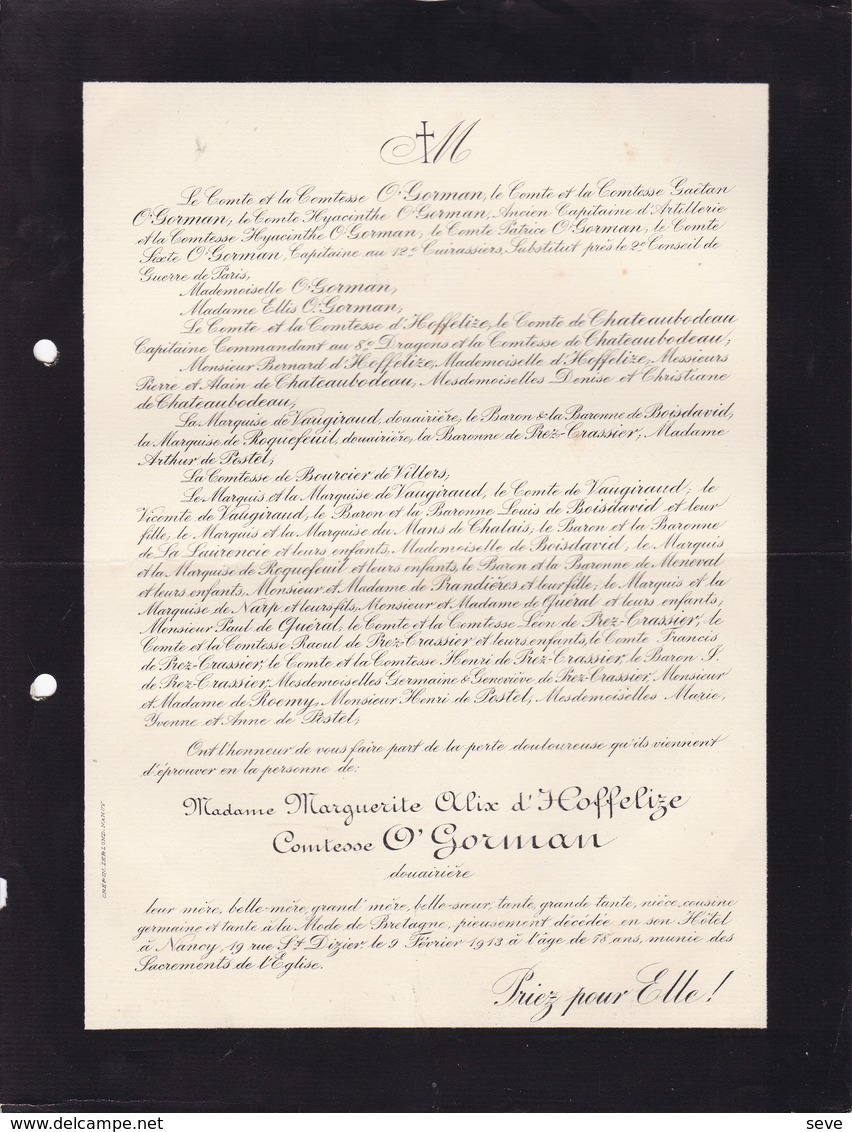 M
Le Comte et la Comtesse O'Gorman, le Comte et la Comtesse Gaëtan
O'Gorman, le Comte Hyacinthe O'Gorman, Ancien Capitaine d'Artillerie
et la Comtesse Hyacinthe O'Gorman, le Comte Patrice O'Gorman, le Comte
Sixte O'Gorman, Capitaine au 12e Cuirassiers, Substitut près le 2e Conseil de
Guerre de Paris,
Mademoiselle O'Gorman,
Madame Ellis O'Gorman,
Le Comte et la Comtesse d'Hoffelize, le Comte de Chateaubodeau
Capitaine Commandant au 8e Dragons et la Comtesse de Chateaubodeau;
Monsieur Bernard d'Hoffelize, Mademoiselle d'Hoffelize, Messieurs
Pierre et Alain de Chateaubodeau, Mesdemoiselles Denise et Christiane
de Chateaubodeau;
La Marquise de Vaugiraud, douairière, le Baron & la Baronne de Boisdavid,
la Marquise de Roquefeuil, douairière, la Baronne de Prez-Crassier, Madame
Arthur de Postel,
La Comtesse de Bourcier de Villers,
Le Marquis et la Marquise de Vaugiraud, le Comte de Vaugiraud; le
Vicomte de Vaugiraud, le Baron et la Baronne Louis de Boisdavid et leur
fille, le Marquis et la Marquise du Mans de Chalais; le Baron et la Baronne
de La Laurencie et leurs enfants, Mademoiselle de Boisdavid, le Marquis
et la Marquise de Roquefeuil et leurs enfants, le Baron et la Baronne de Meneval
et leurs enfants, Monsieur et Madame de Prandières et leur fille; le Marquis et la
Marquise de Narp et leurs fils, Monsieur et Madame de Quéral et leurs enfants;
Monsieur Paul de Quéral, le Comte et la Comtesse Léon de Prez-Crassier, le
Comte et la Comtesse Raoul de Prez-Crassier et leurs enfants, le Comte Francis
de Prez-Crassier, le Comte et la Comtesse Henri de Prez-Crassier, le Baron J.
de Prez-Crassier, Mesdemoiselles Germaine & Geneviève de Prez-Crassier, Monsieur
et Madame de Roemy, Monsieur Henri de Postel, Mesdemoiselles Marie,
Yvonne et Anne de Postel,
Ont l'honneur de vous faire part de la perte douloureuse qu'ils viennent
d'éprouver en la personne de:
Madame Marguerite Alix d'Hoffelize
Comtesse O'Gorman
douairière
leur mère, belle-mère, grand'mère, belle-sœur, tante, grande tante, nièce, cousine
germaine et tante à la Mode de Bretagne, pieusement décédée en son Hôtel
à Nancy, 19 rue St Dizier, le 9 Février 1913 à l'âge de 78 ans, munie des
Sacrements de l'Eglise.
Priez pour Elle!
CRÉPIN-LEBLOND, NANCY
delcampe.net
seve